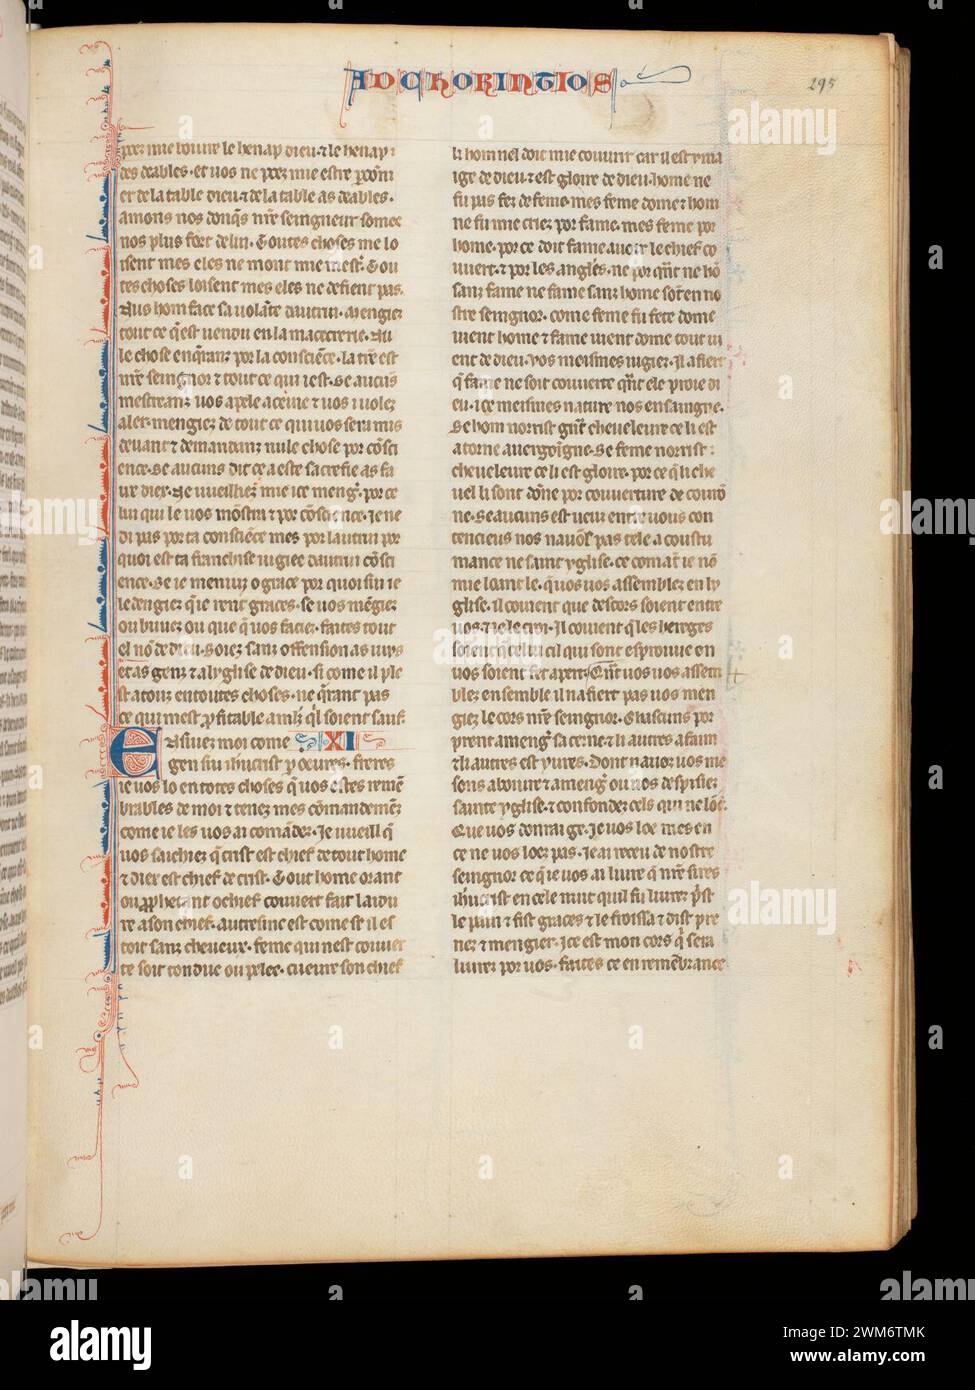 AD CHORINTIOS
295
poez mie boivre le henap dieu · ⁊ le henap
des deables · et vos ne poez mie estre parconi
er de la table dieu ⁊ de la table as deables ·
amons nos donqͣs nrē seingneur somes
nos plus fort de lui · Toutes choses me lo
isent mes eles ne mont mie mest̾ · Tou
tes choses loisent mes eles ne defient pas ·
Nus hom face sa volāte dautrui · Mengiez
tout ce qͥ est vendu en la macecrerie · Nu
le chose enqͥranz por la consciēce · la tr̄e est
nrē seingnor ⁊ tout ce qui i est · Se aucūs
mescreanz vos apele a cene ⁊ vos i volez
aler · mengiez de tout ce qui vos sera mis
devant ⁊ demandanz nule chose por cōsci
ence · Se aucuns dit ce a este sacrefie as fa
ux diex · Ne vueilliez mie ice meng̾ · por ce
lui qui le vos mōstra ⁊ por cōscience · Je ne
di pas por ta consciēce mes por lautrui por
quoi est ta franchise iugiee dautrui cōsci
ence · Se ie meniuz o grace por quoi sui ie
ledengiez qͥ ie rent graces · se vos mēgiez
ou buvez ou que qͥ vos faciez · faites tout
el nō de dieu · Soiez sanz offension as iuys
et as genz ⁊ a lyglise de dieu · si come il ple
st a touz en toutes choses · ne qͥrant pas
ce qui mest ꝓfitable a mlt̄z qͥl soient sauf ·
Ensivez moi come XI
gen sui ihūcrist ꝑ oevres · freres
ie vos lo en totes choses qͥ vos estes remē
brables de moi ⁊ tenez mes cōmandemēz
come ie les vos ai comādez · Je vueill qͥ
vos sachiez qͥ crist est chief de tout home
⁊ diex est chief de crist · Tout home orant
ou ꝓphetant o chief couvert fait laidu
re a son chief · autresinc est come st il es
toit sanz cheveux · feme qui nest couver
te soit tondue ou pelee · cuevre son chief
li hom nel doit mie couvrir car il est yma
ige de dieu · ⁊ est gloire de dieu · home ne
fu pas fez de feme · mes feme dome ⁊ hom
ne fu mie criez por fame · mes feme por
home · por ce doit fame avoir le chief co
uvert · ⁊ por les anglēs · ne por qͣnt ne hō
sanz fame ne fame sanz home sōt en no
stre seingnor · come feme fu fete dome
vient home ⁊ fame vient dome tout vi
ent de dieu · vos meismes iugiez · Il afiert
qͥ fame ne soit couverte qͣnt ele proie di
eu · ice meismes nature nos ensaingne ·
Se hom norrist gͣnt cheveleure ce li est
atorne a vergoigne · Se feme norrist
cheveleure ce li est gloire · por ce qͥ li che
vel li sont dōne por couverture de comō
ne · Se aucuns est veuz entre vous con
tencieus nos navōs pas tele acoustu
mance ne saint yglise · ce comāt ie nō
mie loant le · qͥ vos vos assemblez en ly
glise · il covient que descors soient entre
vos · ⁊ ie le croi · Il covient qͥ les hereges
soient qͥ celui cil qui sont esprovue en
vos soient fet apert · Qͣnt vos vos assem
blez ensemble il nafiert pas vos men
giez le cors nrē seingnor · Chascuns por
prent a mengͥ sa cene · ⁊ li autres a faim
⁊ li autres est yvres · Dont navez vos me
sons a boivre ⁊ a mengͥ ou vos despisiez
sainte yglise · ⁊ confondez cels qui ne lōt ·
Que vos donrai ge · Je vos loe mes en
ce ne vos loez pas · Je ai receu de nostre
seingnor ce qͥ ie vos ai livre qͥ nrē sires
ihūcrist en cele nuit quil fu livrez p̄st
le pain ⁊ fist graces ⁊ le froissa ⁊ dist pre
nez ⁊ mengiez · ice est mon cors qͥ sera
livrez por vos · faites ce en remēbrance
alamy
Image ID: 2WM6TMK
www.alamy.com